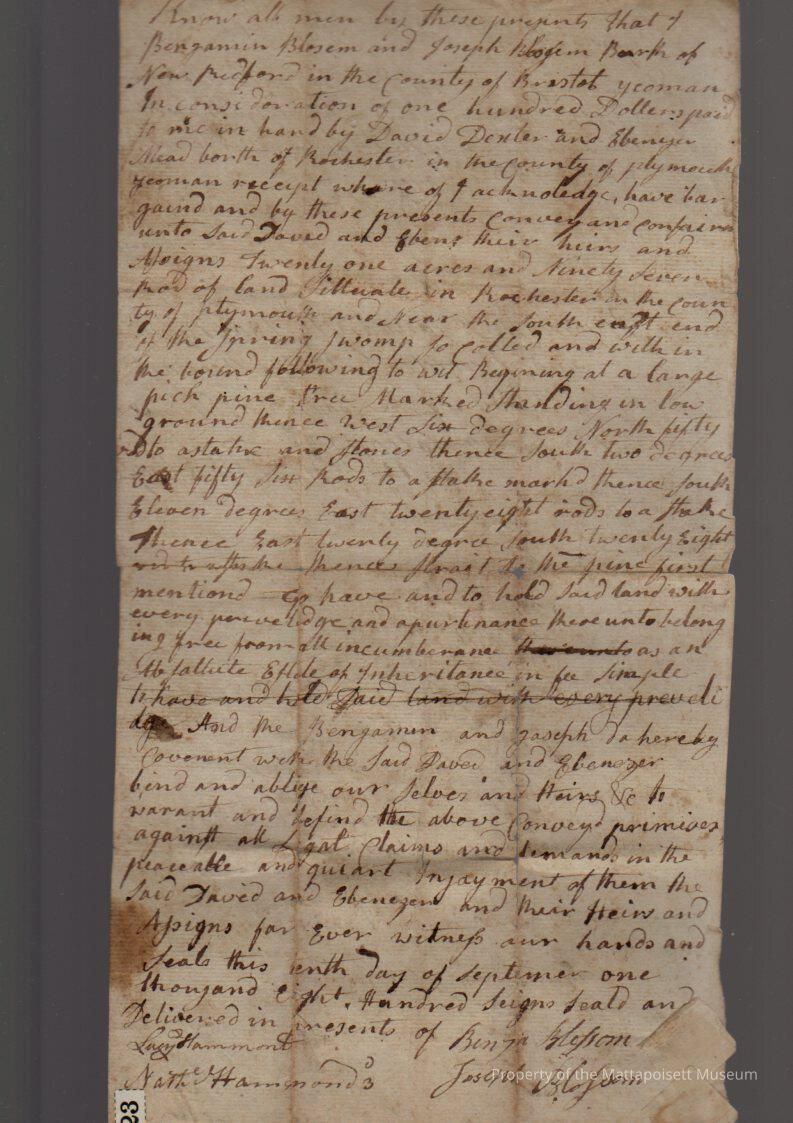 Know all men by these presents that I
Bengamin Blosem and Joseph Blosem Barth of
New Bedford in the County of Brestol yeoman
In consideration of one hundred Dollers paid
to me in hand by David Dexter and Ebenezer
Mead borth of Rochester in the County of plymouth
yeoman receipt whare of I acknoledge, have bar
gaind and by these presents Convey and Confairm
unto Said David and Ebenz their heirs and
Assigns Twenty one acres and Ninety Seven
Rod of land Sittuate in Rochester in the Coun
ty of plymouth and Near the South east end
of the Spring Swomp so Colled and with in
the bound following to wit Begining at a large
pich pine tree Marked Standing in low
ground thence West Six degrees North fifty
rod to a stake and stones thence South two degrees
East fifty Six Rods to a stake markd thence South
Eleven degrees East twenty eight rods to a Stake
thence East twenty degree South twenty Eight
thence strait to the pine first
mentiond to have and to hold Said land with
every prevelidge and apurtinance thereunto belong
ing free from all incumberance thereunto as an
Absallute Estate of Inheritance in fee Simple
to have and hold Said land with every preveli
dge And the Bengamin and Joseph do hereby
Covenent with the Said David and Ebenezer
bind and ablige our Selves and Heirs &c to
warant and defind the above Conveyd primises
against all Legal Claims and demands in the
peaceable and quiart Injayment of them the
Said David and Ebenezer and their Heirs and
Assigns for Ever witness our hands and
Seals this tenth day of Septemer one
thousand Eight Hundred Seigns Seald and
Delivered in presents of Benja Blossom
Lucy Hammont
Nathl Hammond 3 Joseph Blossom
Property of the Mattapoisett Museum
23